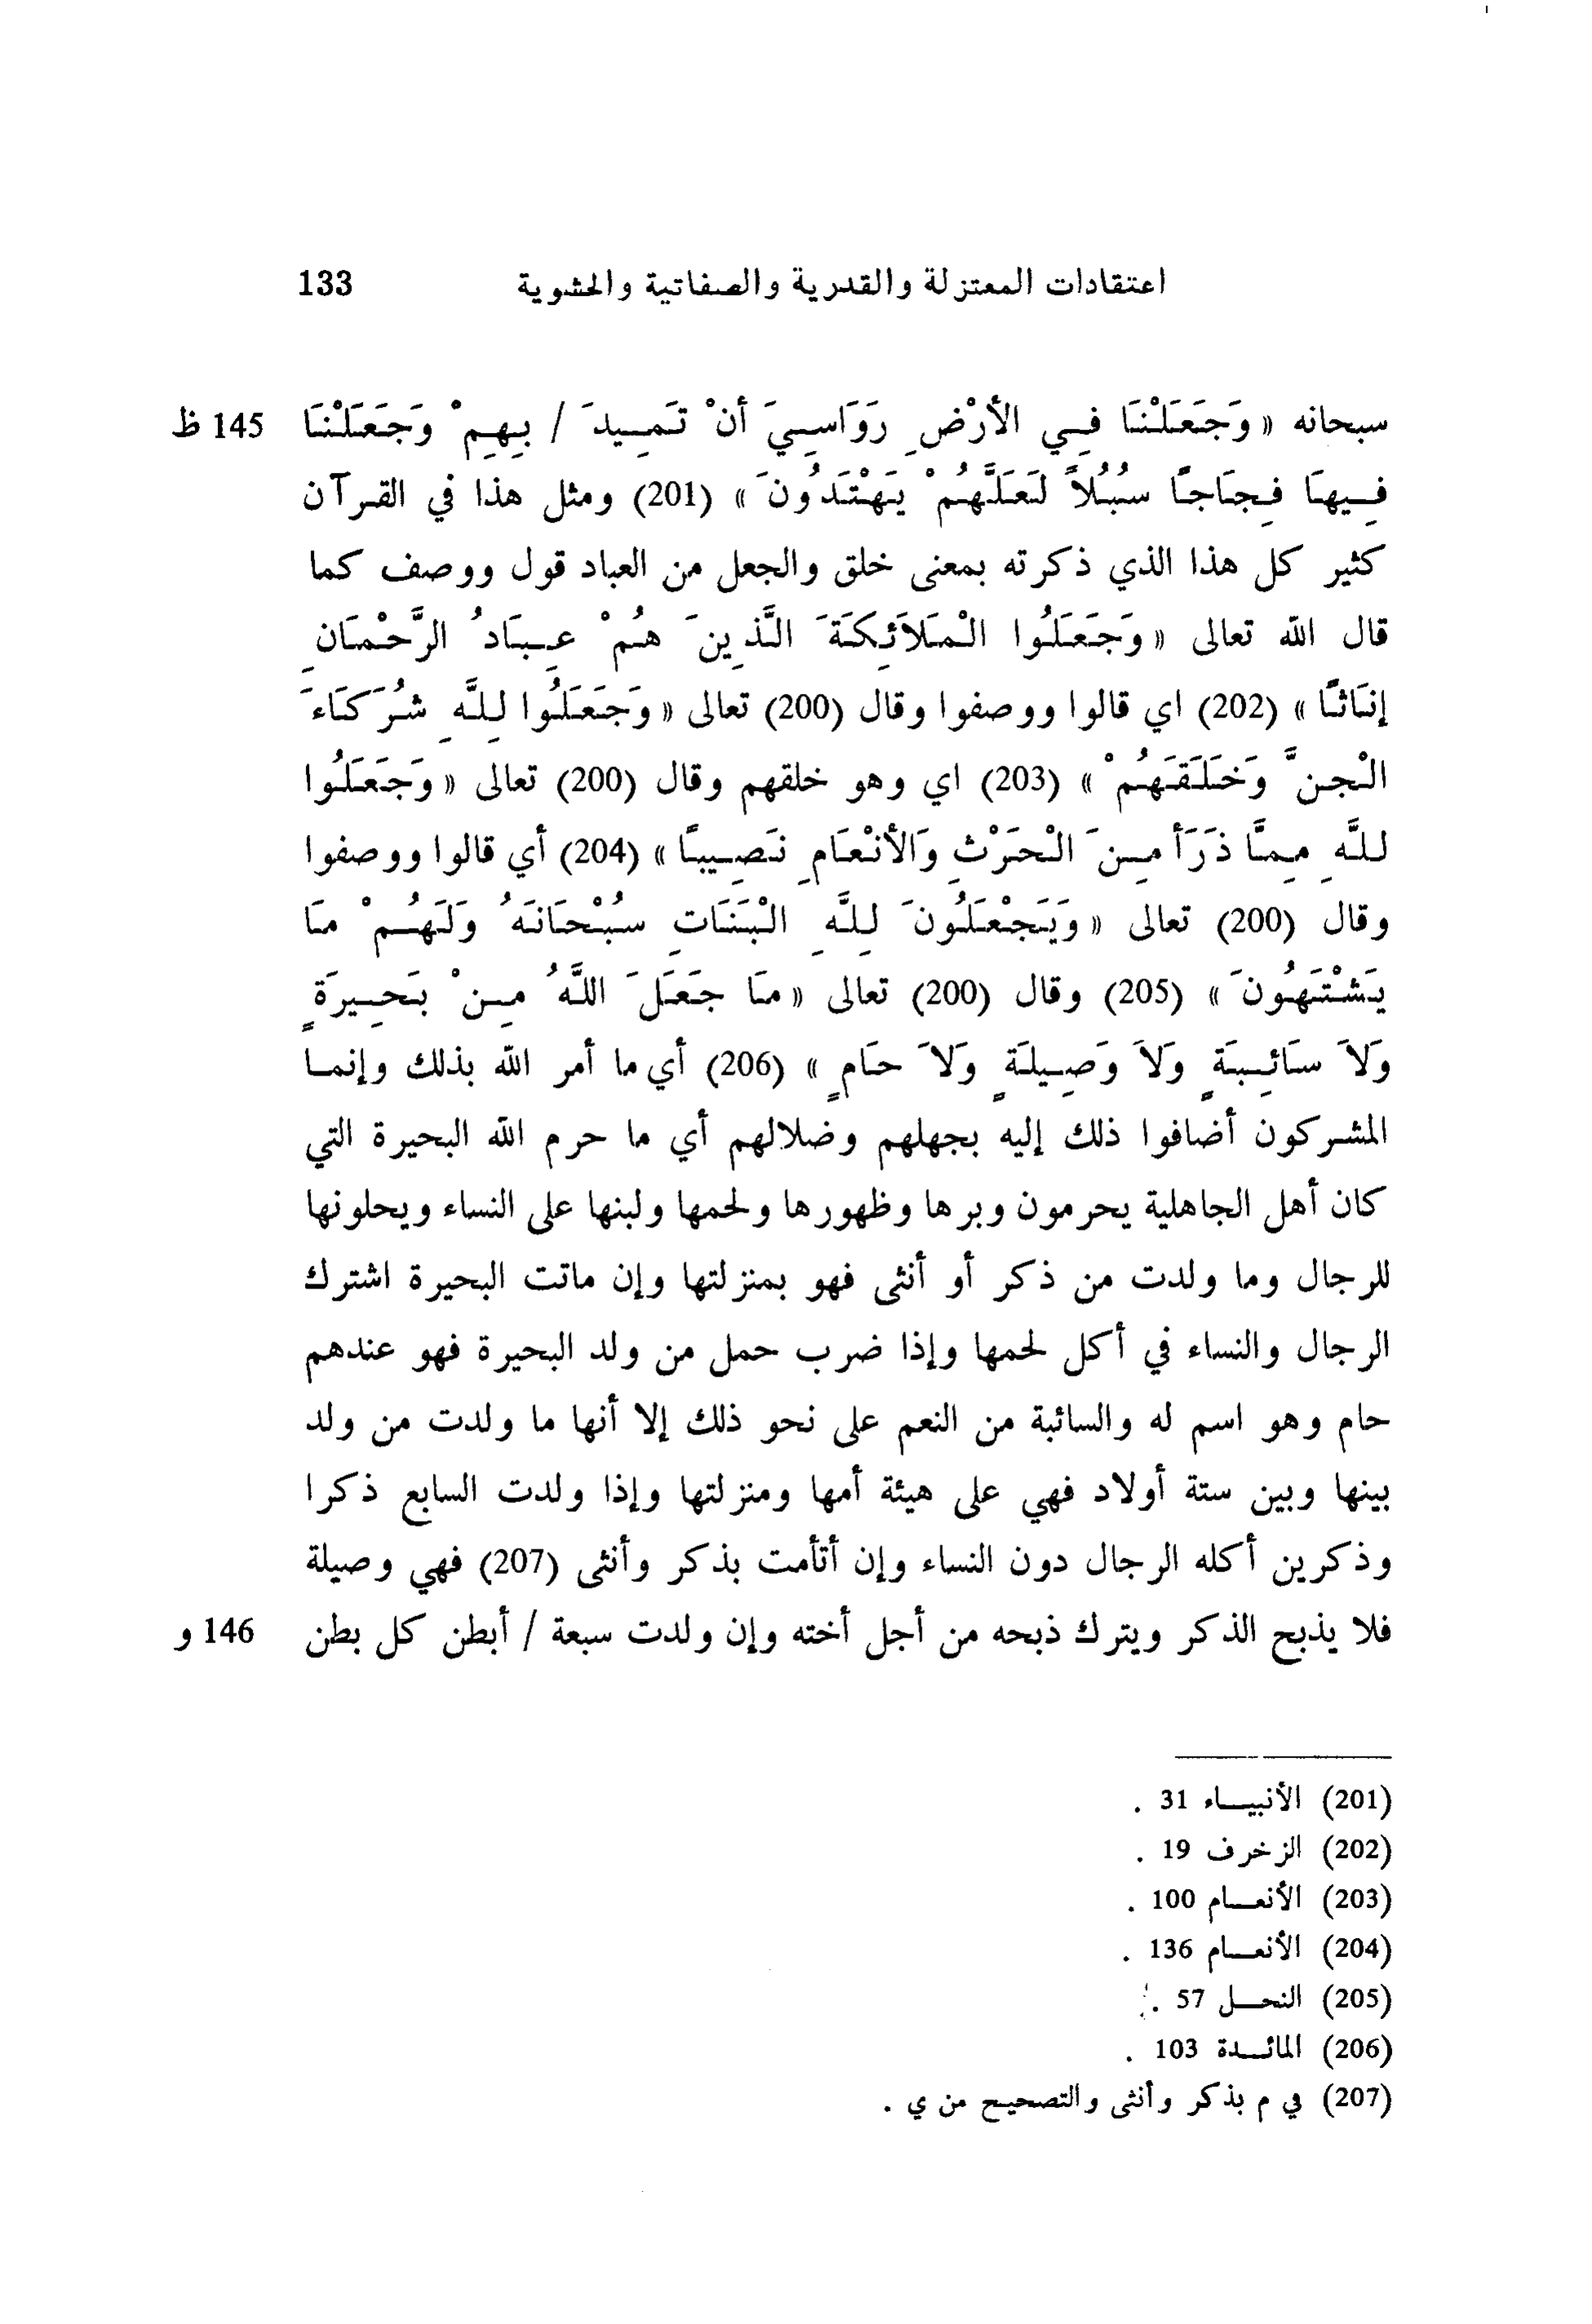 اعتقادات المعتزلة والقدرية والصفاتية والحشوية 133
سبحانه « وَجَعَلْنَا فِي الأَرْضِ رَوَاسِيَ أَنْ تَمِيدَ / بِهِمْ وَجَعَلْنَا 145 ظ
فِيهَا فِجَاجًا سُبُلاً لَعَلَّهُمْ يَهْتَدُونَ » (201) ومثل هذا في القرآن
كثير كل هذا الذي ذكرته بمعنى خلق والجعل من العباد قول ووصف كما
قال الله تعالى « وَجَعَلُوا الْمَلاَئِكَةَ الَّذِينَ هُمْ عِبَادُ الرَّحْمَانِ
إِنَاثًا » (202) اي قالوا ووصفوا وقال (200) تعالى « وَجَعَلُوا لِلَّهِ شُرَكَاءَ
الْجِنَّ وَخَلَقَهُمْ » (203) اي وهو خلقهم وقال (200) تعالى « وَجَعَلُوا
لِلَّهِ مِمَّا ذَرَأَ مِنَ الْحَرْثِ وَالأَنْعَامِ نَصِيبًا » (204) أي قالوا ووصفوا
وقال (200) تعالى « وَيَجْعَلُونَ لِلَّهِ الْبَنَاتِ سُبْحَانَهُ وَلَهُمْ مَا
يَشْتَهُونَ » (205) وقال (200) تعالى « مَا جَعَلَ اللَّهُ مِنْ بَحِيرَةٍ
وَلاَ سَائِبَةٍ وَلاَ وَصِيلَةٍ وَلاَ حَامٍ » (206) أي ما أمر الله بذلك وإنما
المشركون أضافوا ذلك إليه بجهلهم وضلالهم أي ما حرم الله البحيرة التي
كان أهل الجاهلية يحرمون وبرها وظهورها ولحمها ولبنها على النساء ويحلونها
للرجال وما ولدت من ذكر أو أنثى فهو بمنزلتها وإن ماتت البحيرة اشترك
الرجال والنساء في أكل لحمها وإذا ضرب حمل من ولد البحيرة فهو عندهم
حام وهو اسم له والسائبة من النعم على نحو ذلك إلا أنها ما ولدت من ولد
بينها وبين ستة أولاد فهي على هيئة أمها ومنزلتها وإذا ولدت السابع ذكرا
وذكرين أكله الرجال دون النساء وإن أتأمت بذكر وأنثى (207) فهي وصيلة
فلا يذبح الذكر ويترك ذبحه من أجل أخته وإن ولدت سبعة / أبطن كل بطن 146 و
(201) الأنبياء 31 .
(202) الزخرف 19 .
(203) الأنعام 100 .
(204) الأنعام 136 .
(205) النحل 57 .
(206) المائدة 103 .
(207) في م بذكر وأنثى والتصحيح من ي .